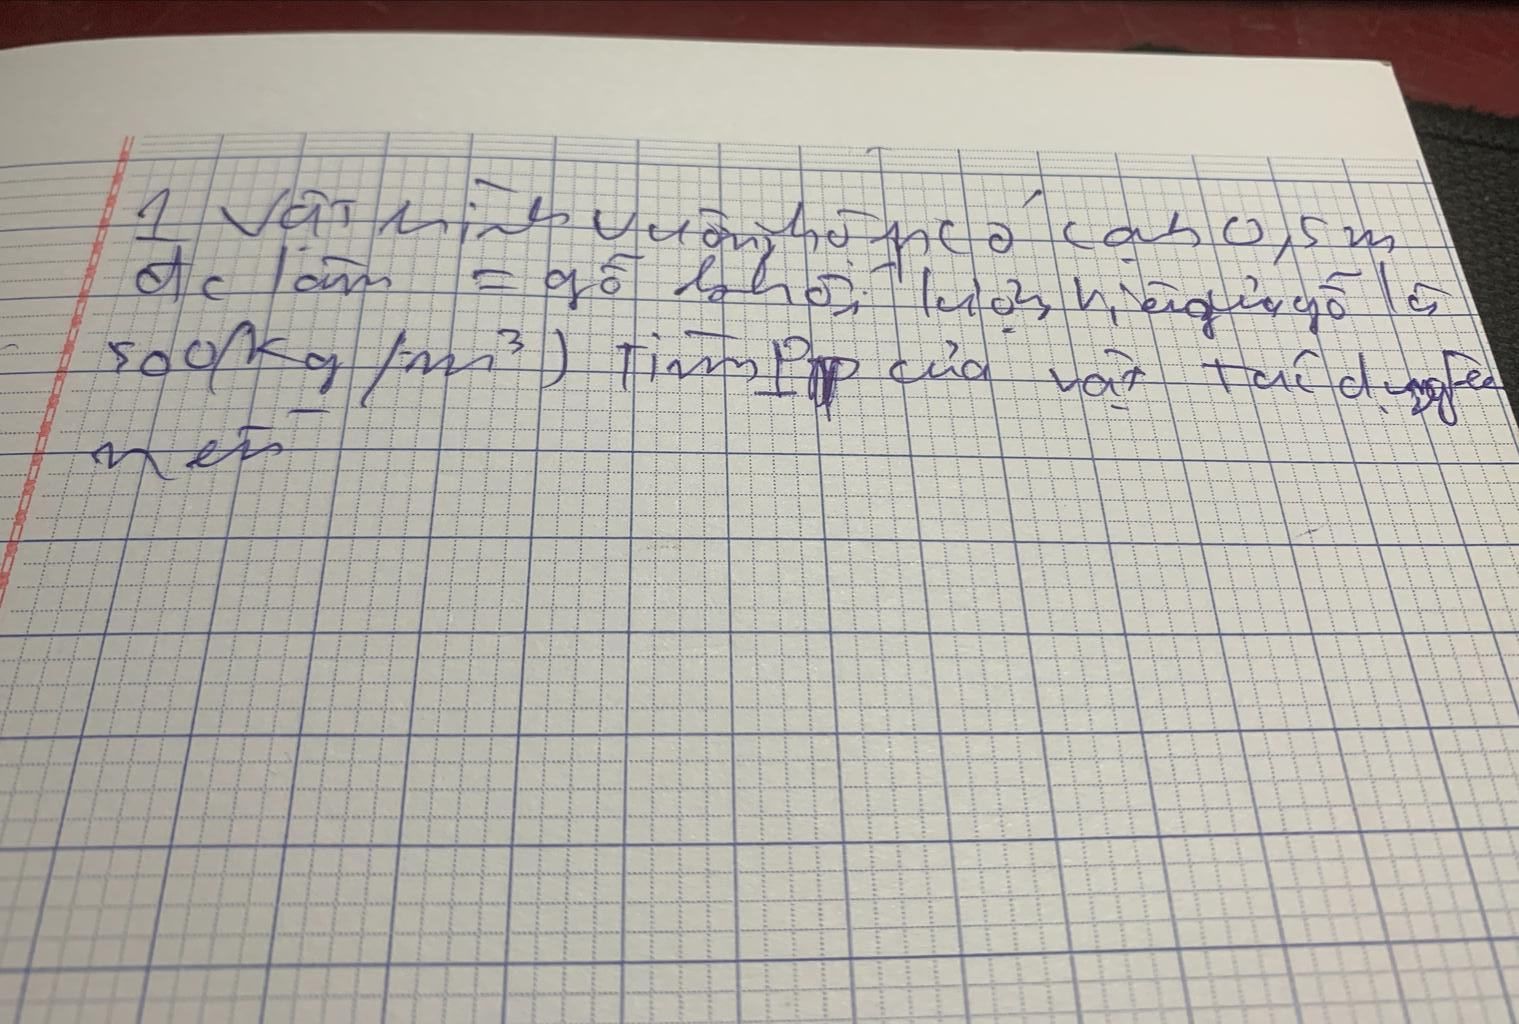 1 vật hình vuông hộp có cạnh 0,5 m
đc làm = gỗ khối lượng riêng của gỗ là
500(kg/m³) Tìm P của vật tác dụng lên
nền